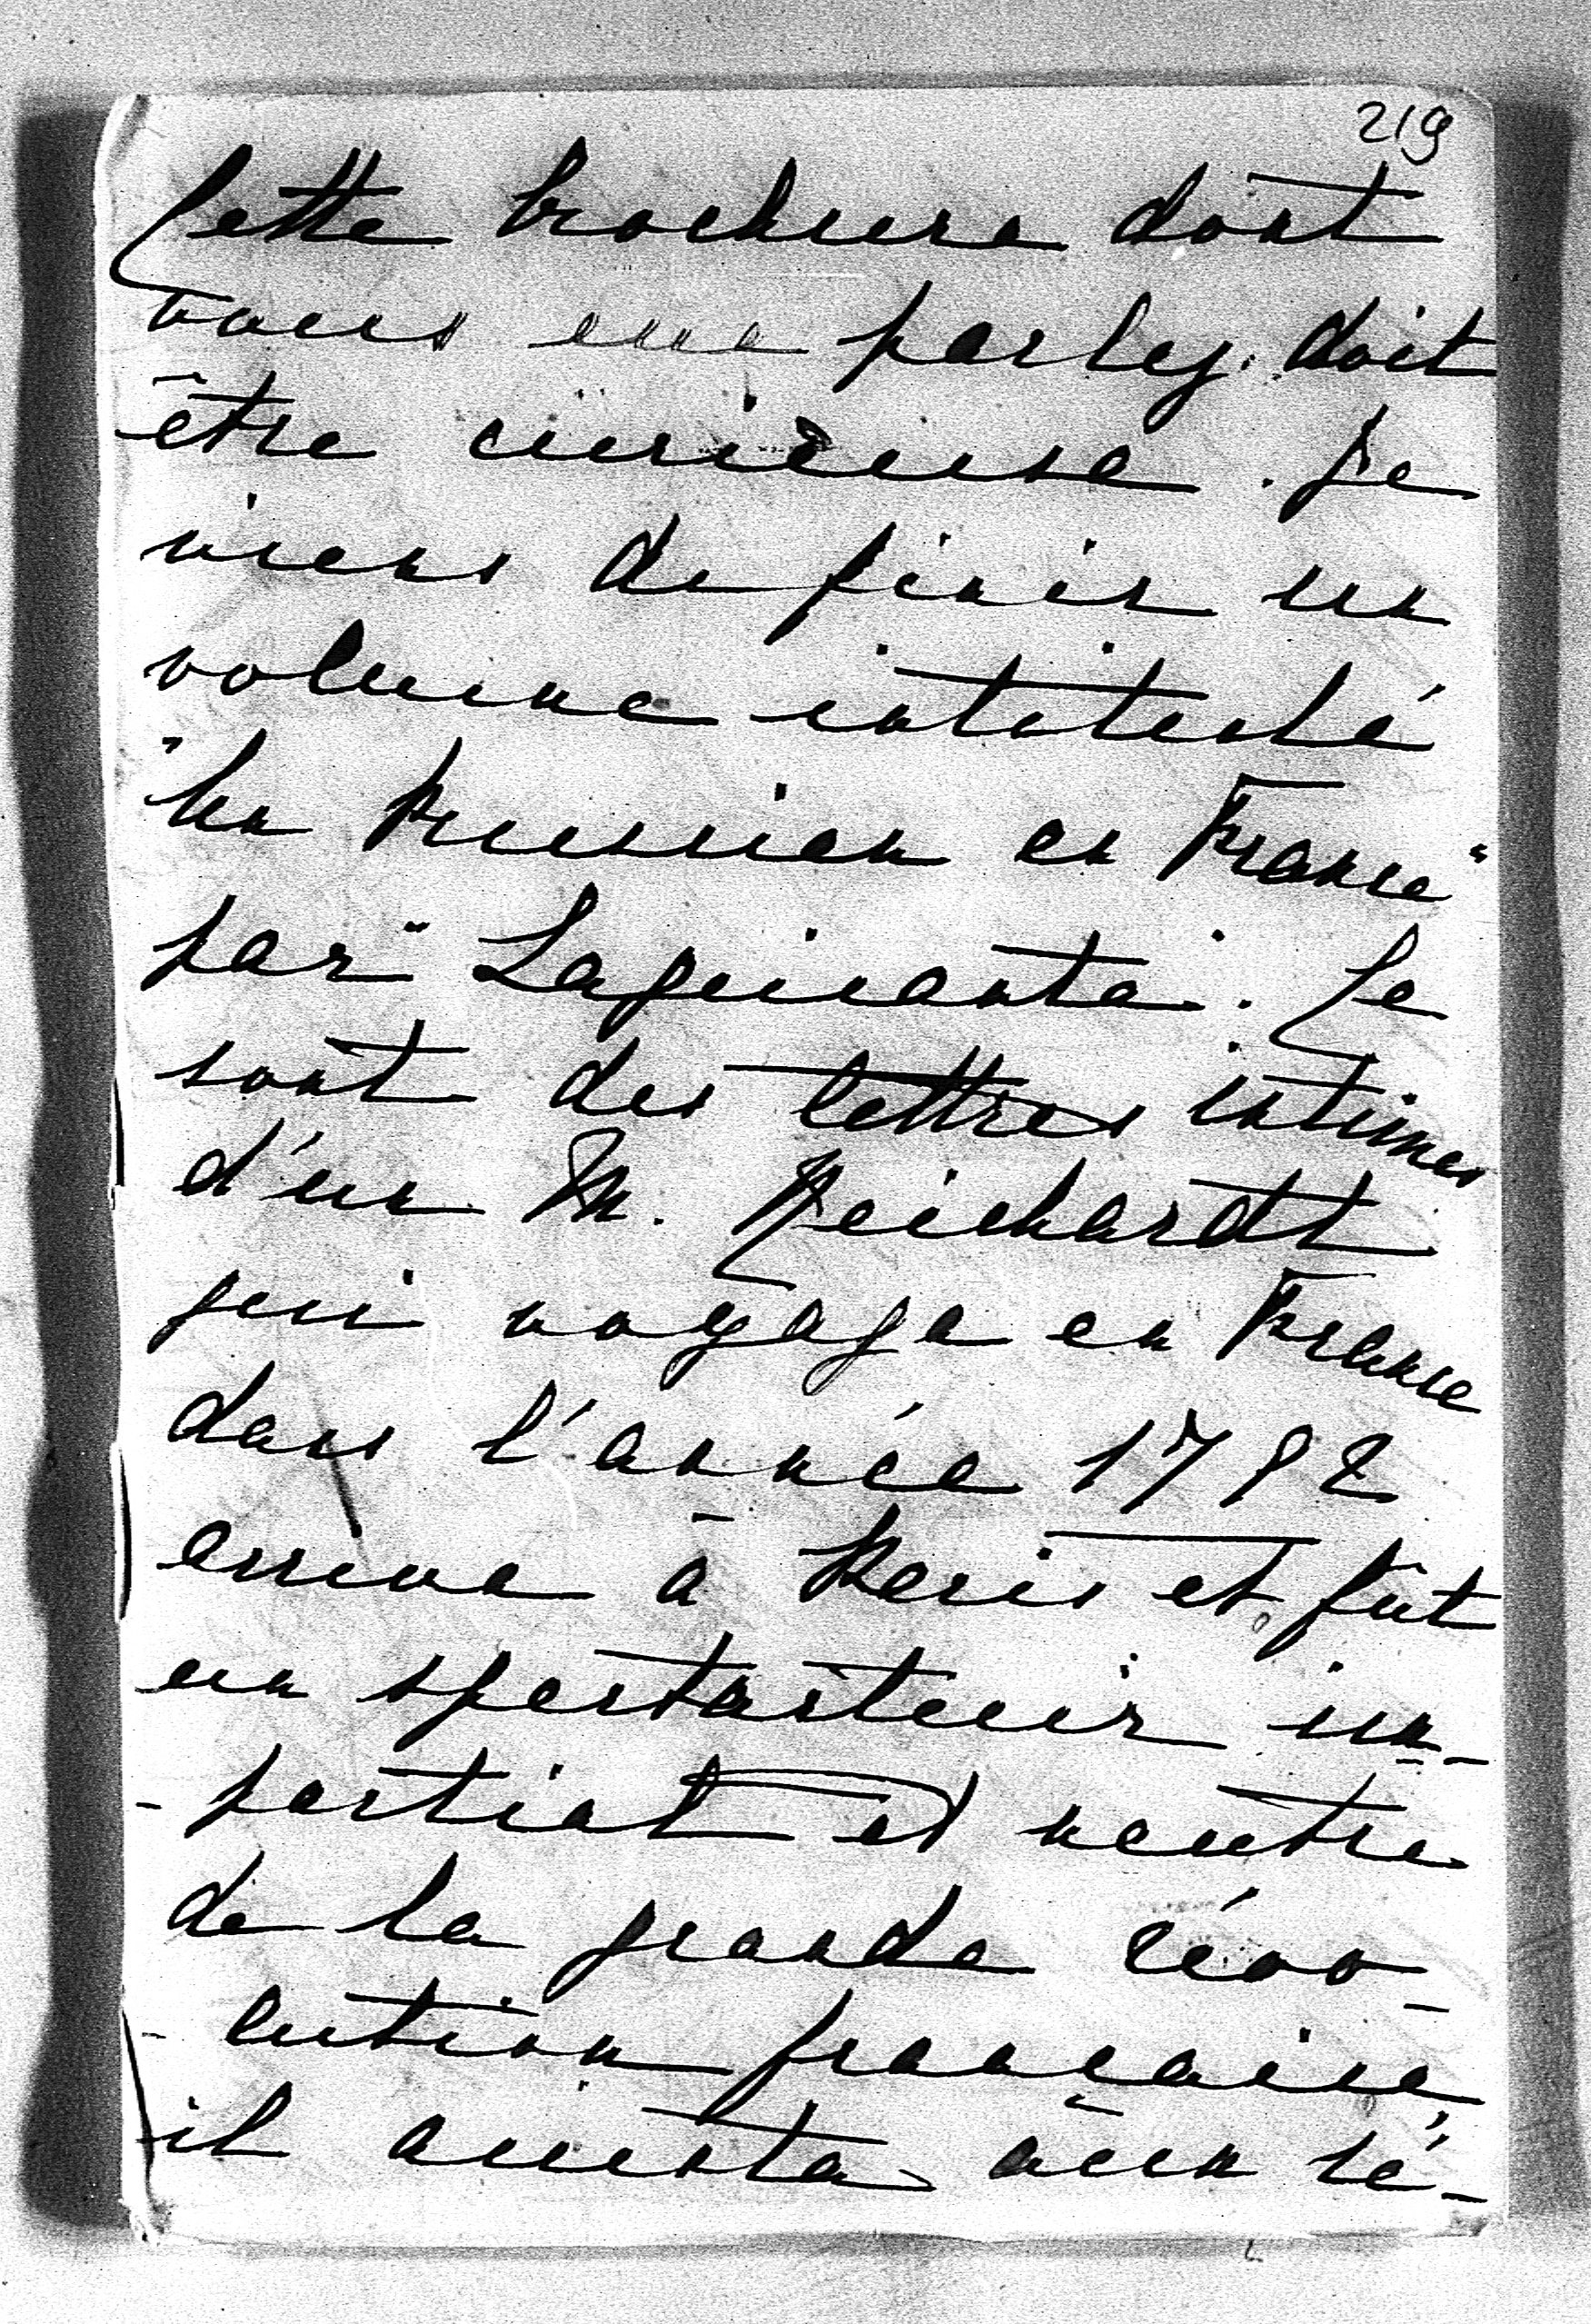 219
Cette brochure dont
vous me parlez doit
être curieuse. Je
viens de finir un
volume intitulé
"Un Prussien en France"
par Laquiante. Ce
sont des lettres intimes
d'un M. Reichardt
qui voyage en France
dans l'année 1792
arrive à Paris et fut
un spectacteur im-
-partial et neutre
de la grande révo-
-lution française,
il assista aux sé-